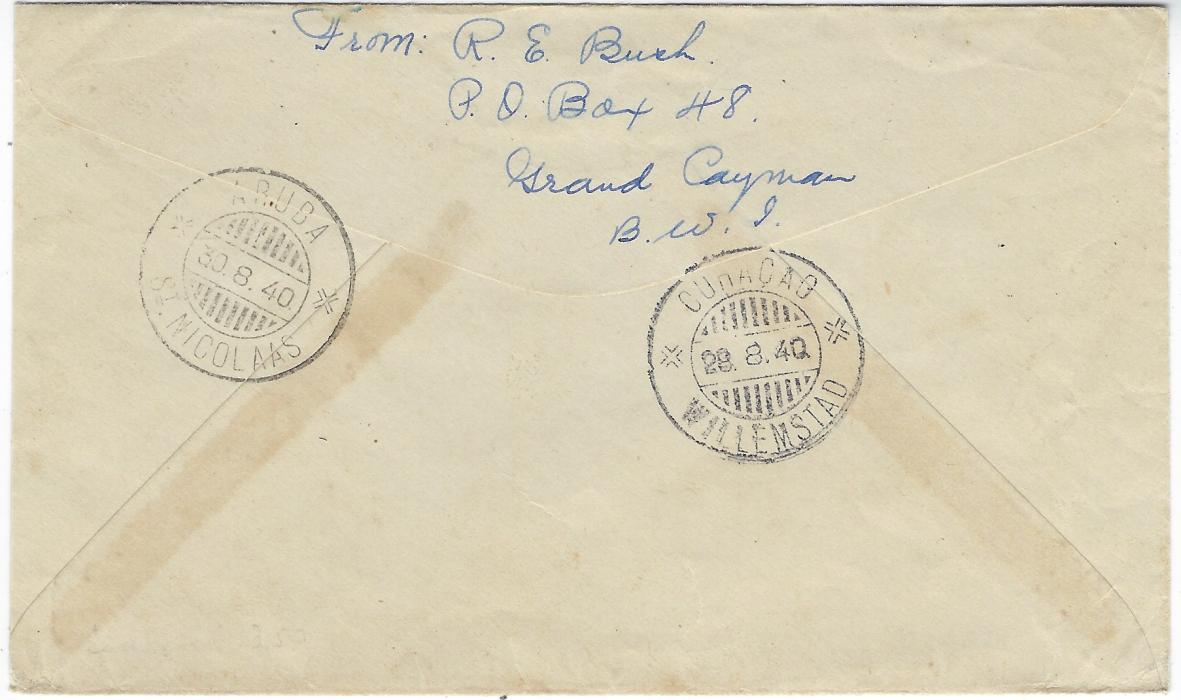 From: R. E. Bush.
P.O. Box 48.
Grand Cayman
B. W. I.
ARUBA
30.8.40.
ST. NICOLAAS
CURAÇAO
8.40
WILLEMSTAD